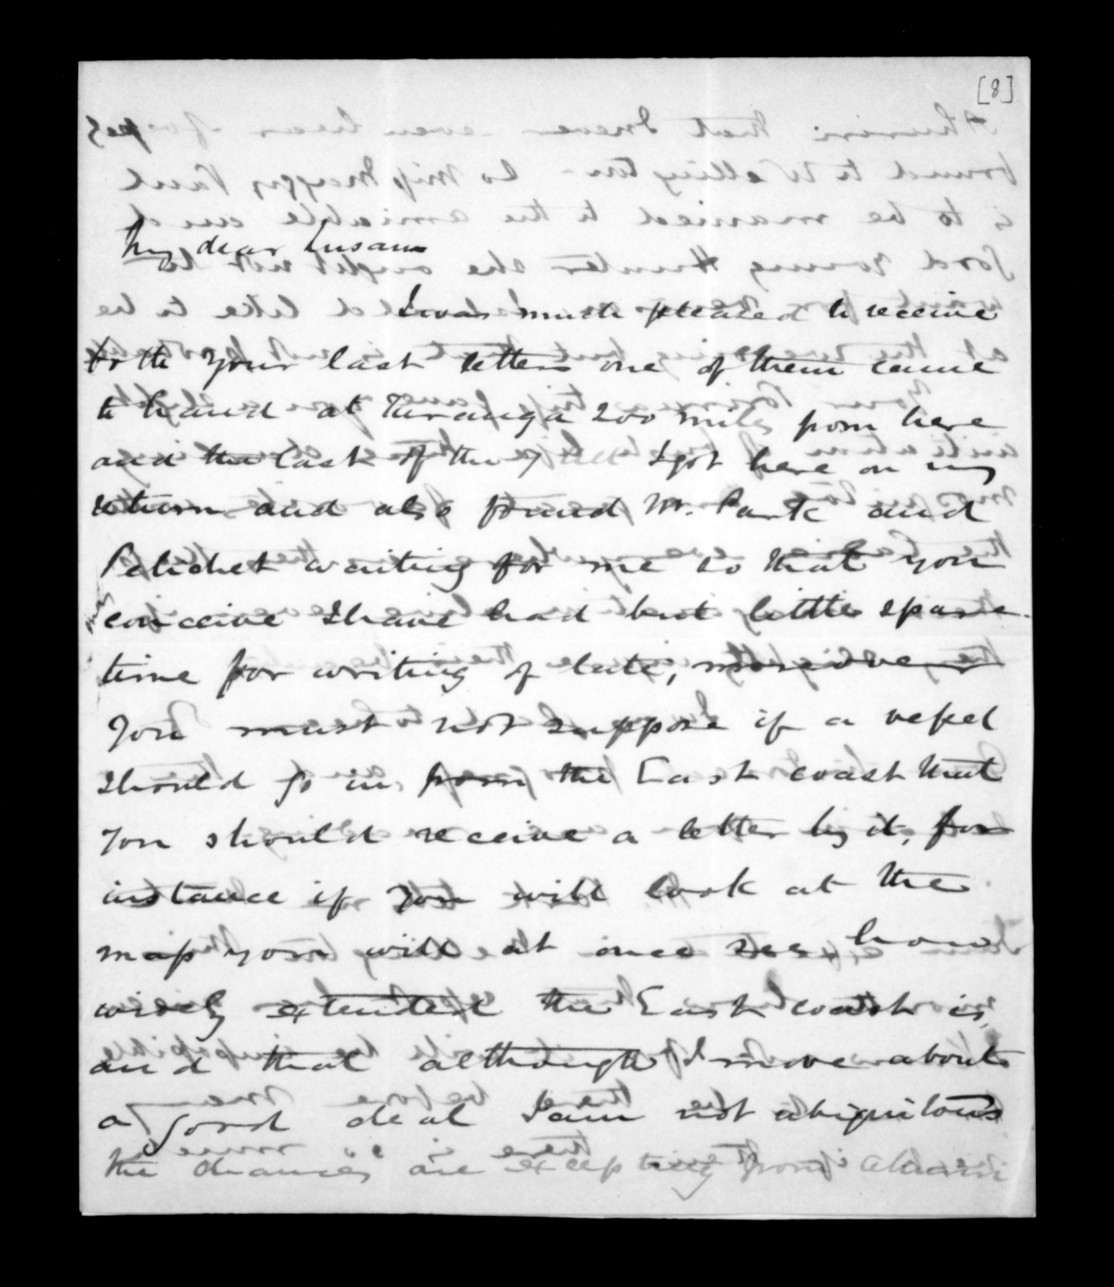 [8]
My dear Susan
I was much pleased to receive
both your last letters one of them came
to hand at Turanga 200 miles from here
and the last of the I got here on my
return and also found Mr. Park and
Pelichet waiting for me so that you
can conceive I have had but little spare
time for writing of late, moreover
You must not suppose if a vessel
should go in from the East coast that
you should receive a letter by it, for
instance if you will look at the
map you will at once see how
widely extended the East coast is,
and that although I move about
a good deal I am not ubiquitous
the chances are excepting from Ahuriri